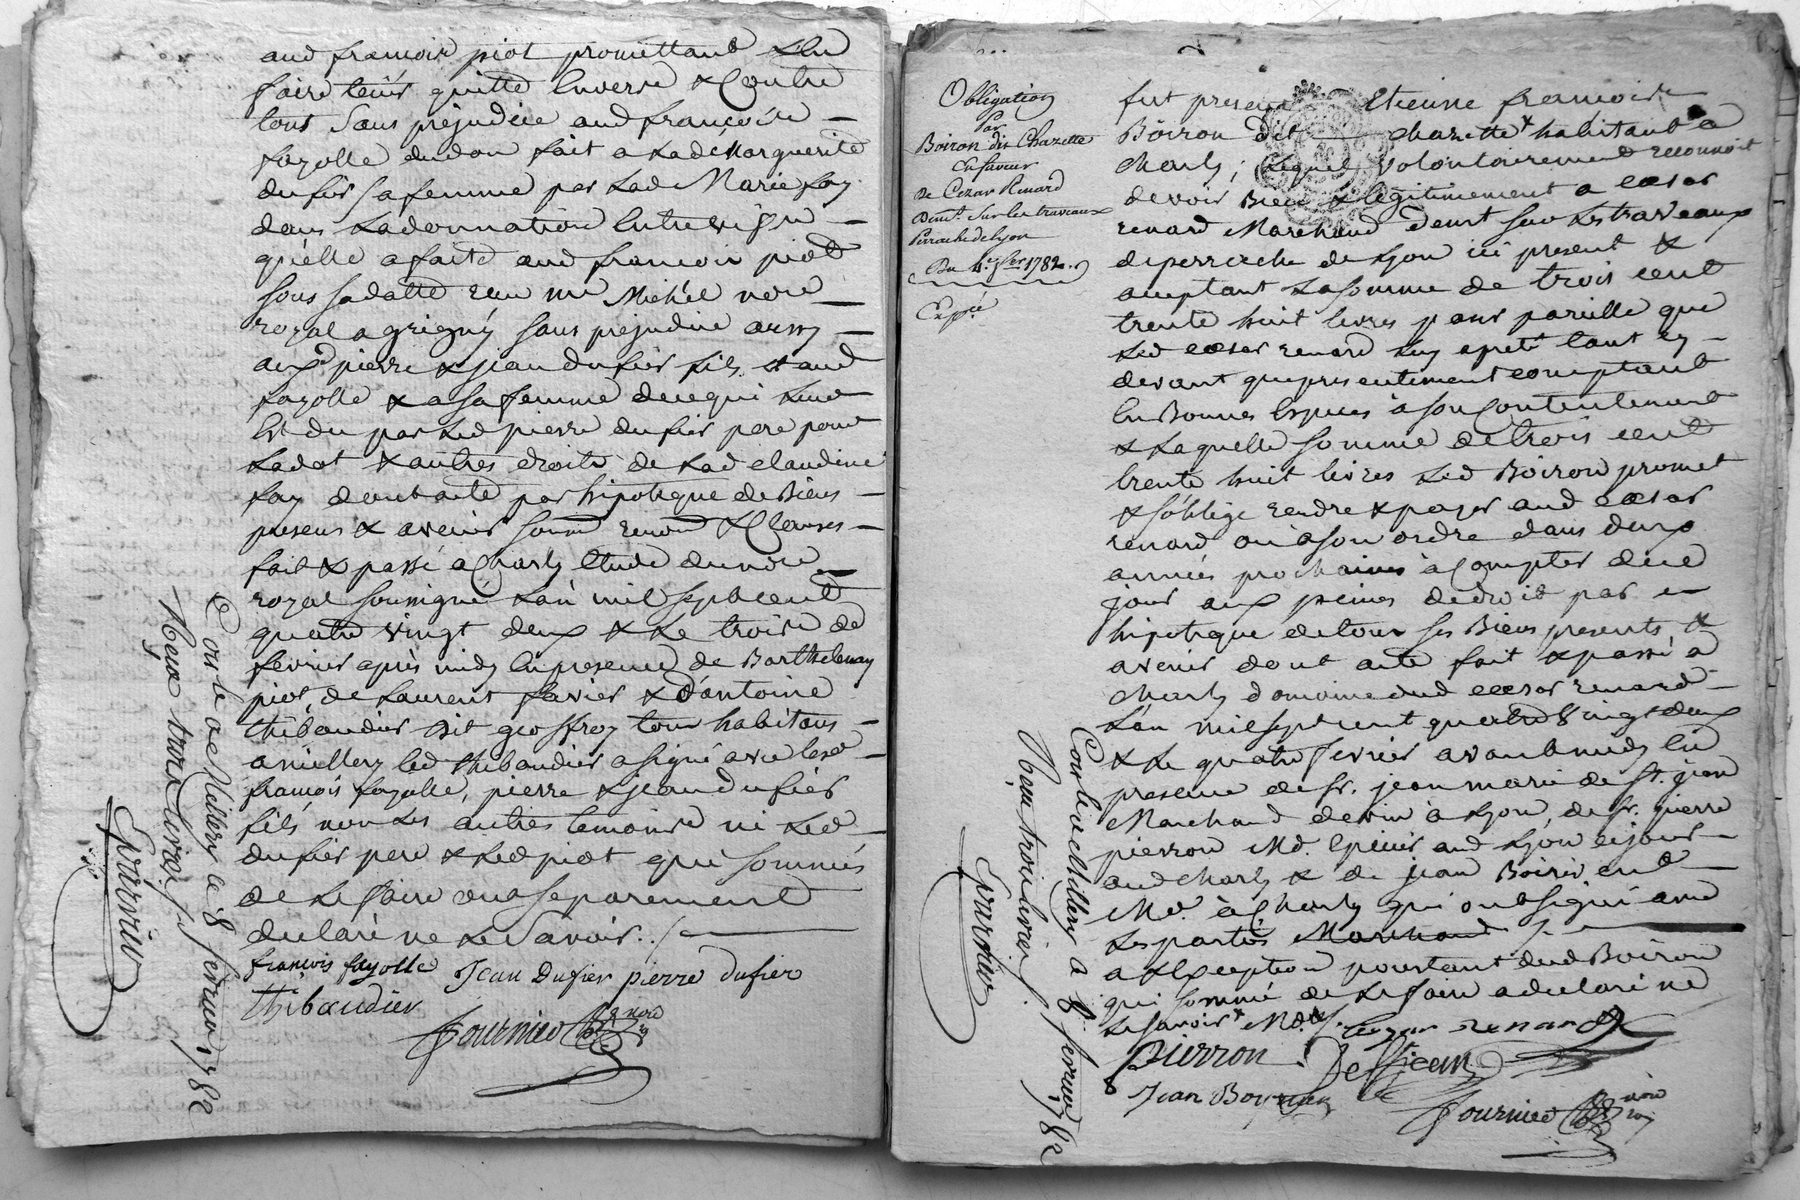 aud francois piot promettant Le lu
faire tenir quitte Envers & Contre
tous Sans préjudice aud françois
fayolle dudon fait a Lade Marguerite
dufier sa femme par Lad Marie fay
dans La donnation Entrevifs
quelle a faite aud francois piot
sous sa datte recu me Michel nore
royal a grigny sans préjudice aussy
aux pierre & jean dufier fils & aud
fayolle & a sa femme de ce qui Leur
Est du par Led pierre dufier pere pour
La dot & autres droits de Lad claudine
fay dont acte par hipoteque de Biens
presens & avenir soum renon & Clauses
fait & passé a Charly Etude du nore
royal soussigné L'an mil sept cent
quatre vingt deux & Le trois de
fevrier après midy En presence de Barthelemy
piot, de Laurent favier & d'antoine
thibaudier dit geoffroy tous habitans
a millery led thibaudier a signé avec lesd
françois fayolle, pierre & jean dufier
fils non Les autres temoins ni Led
dufier pere & Led piot qui sommés
de Le faire ont separement
declaré ne Le Savoir ./.
françois fayolle Jean Dufier pierre dufier
thibaudier
Fournier nore
Conlé a Millery ce 8 fevrier 1782
Reçu trois livres
Evarvier
Obligation
Par
Boiron dit Chazette
En faveur
De Cezar Renard
Demt. Sur les travaux
Perrache de lyon
Du 4e. fer 1782
Expié
fut present Etienne francois
Boiron dit chazette habitant a
Charly; Lequel volontairement reconnoit
devoir Bien & légitimement a cesar
renard Marchand demt sur Les travaux
de perrache de Lyon ici present &
acceptant La somme de trois cent
trente huit livres pour pareille que
Led cesar renard Luy a preté tant cy
devant que presentement comptant
En Bonnes Especes a son Contentement
& Laquelle somme de trois cent
trente huit livres Led Boiron promet
& s'oblige rendre & payer aud cesar
renard ou a son ordre dans deux
années prochaines à Compter de ce
jour aux peines de droit par
hipoteque de tous ses Biens presents &
avenir dont acte fait & passé a
Charly domicile dud cesar renard
L'an mil sept cent quatre vingt deux
& Le quatre fevrier avant midy En
presence de sr. jean marie de st. jean
Marchand de vin à Lyon, de sr. pierre
pierron Md. Epicier aud Lyon de jour
aud Charly & de jean Boiron
Md. à Charly qui ont signé avec
Les parties Marchand
a L'exception pourtant dud Boiron
qui sommé de Le faire a declaré ne
Le savoir
Cezar renard
Pierron De St jean
Jean Boyron
Fournier nore
Conlé a Millery a 8 fevrier 1782
Reçu trois livres
Evarvier